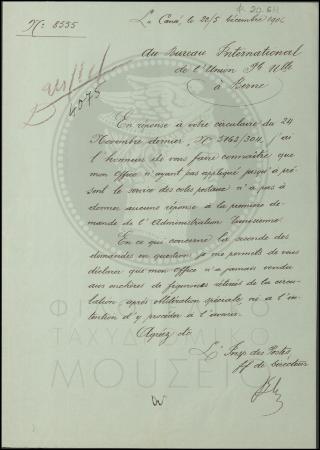 Nº 8535
La Canée le 20/5 décembre 1906
Au Bureau International
de l'Union Ple Ulle
à Berne
4075
En réponse à votre circulaire du 24
Novembre dernier, Nº 5162/304, j'ai
l'honneur de vous faire connaître que
mon Office n'ayant pas appliqué jusqu'à pré-
sent le service des colis postaux n'a pas à
donner aucune réponse à la première de-
mande de l'Administration Tunisienne.
En ce qui concerne la seconde des
demandes en question je me permets de vous
déclarer que mon Office n'a jamais vendu
aux enchères de figurines retirées de la circu-
lation, après oblitération spéciale, ni a l'in-
tention d'y procéder à l'avenir.
Agréez etc
L'Insp. des Postes
ff de Directeur
ΦΙ
ΤΑΧΥΔΡΟΜΙΚΟ
ΜΟΥΣΕΙΟ